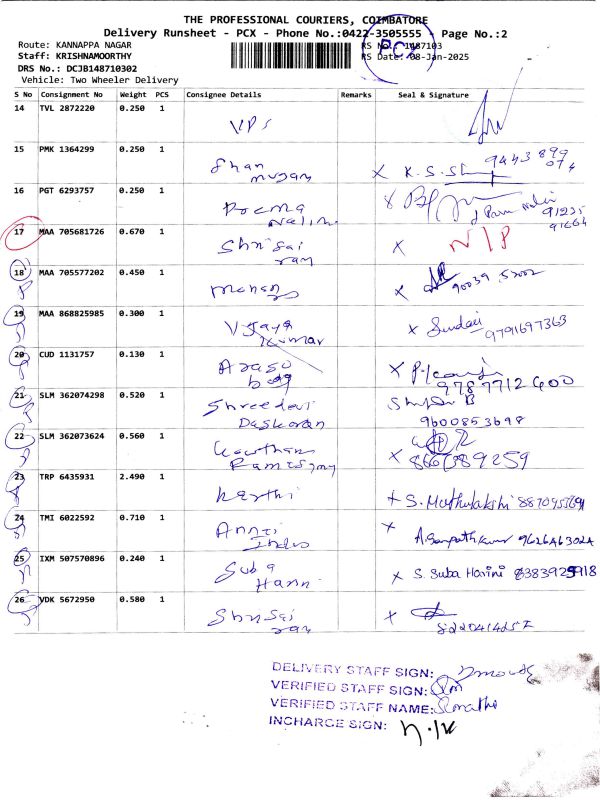 THE PROFESSIONAL COURIERS, COIMBATORE
Delivery Runsheet - PCX - Phone No.:0422-3505555 Page No.:2
Route: KANNAPPA NAGAR RS No.: 1487103
Staff: KRISHNAMOORTHY RS Date: 08-Jan-2025
DRS No.: DCJB148710302
Vehicle: Two Wheeler Delivery
PC
S No Consignment No Weight PCS Consignee Details Remarks Seal & Signature
14 TVL 2872220 0.250 1 VPS
15 PMK 1364299 0.250 1 Shan mugam X K.S. 9443 899 074
16 PGT 6293757 0.250 1 Poema Nalin X 91235
17 MAA 705681726 0.670 1 Shri Sai ram X N/P
18 MAA 705577202 0.450 1 X 90039 52002
19 MAA 868825985 0.300 1 Vijaya Kumar X Sundari 9791697363
20 CUD 1131757 0.130 1 Arasu X 9787712600
21 SLM 362074298 0.520 1 Shreedevi Daskaran B 9600853698
22 SLM 362073624 0.560 1 Gowtham X 8667389259
23 TRP 6435931 2.490 1 Karthi X S. Muthulakshi
24 TMI 6022592 0.710 1 X A. Sampathkumar
25 IXM 507570896 0.240 1 Suba Harini X S. Suba Harini 8383925918
26 VDK 5672950 0.580 1 Shri Sai ram X
DELIVERY STAFF SIGN:
VERIFIED STAFF SIGN:
VERIFIED STAFF NAME:
INCHARGE SIGN: